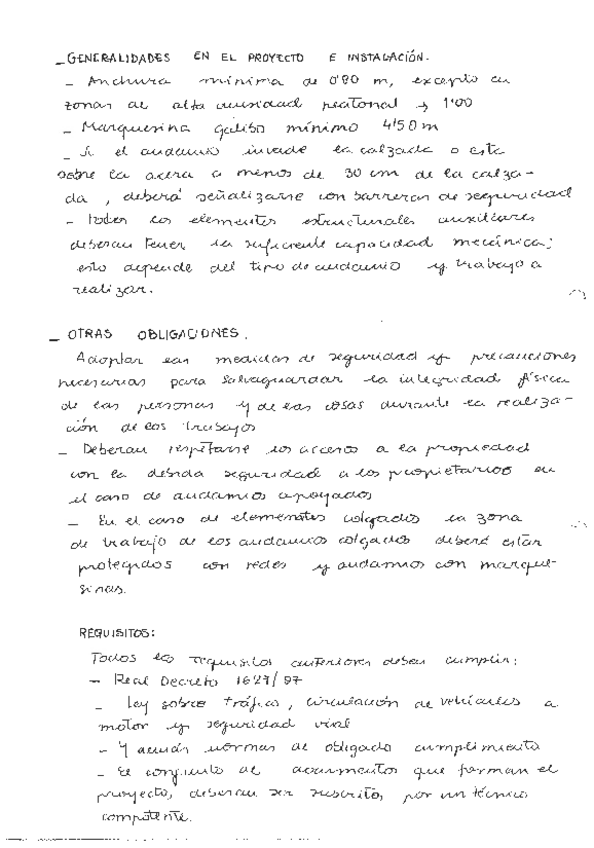 - GENERALIDADES EN EL PROYECTO E INSTALACIÓN.
- Anchura mínima de 0'80 m, excepto en
zonas de alta densidad peatonal → 1'00
- Marquesina galibo mínimo 4'50 m
- Si el andamio invade la calzada o esta
sobre la acera a menos de 30 cm de la calza-
da, deberá señalizarse con barreras de seguridad
- Todos los elementos estructurales auxiliares
deberan tener la suficiente capacidad mecánica;
esto depende del tipo de andamio y trabajo a
realizar.
- OTRAS OBLIGACIONES.
Adoptar las medidas de seguridad y precauciones
necesarias para salvaguardar la integridad física
de las personas y de las cosas durante la realiza-
ción de los trabajos
- Deberan respetarse los accesos a la propiedad
con la debida seguridad a los propietarios en
el caso de andamios apoyados
- En el caso de elementos colgados la zona
de trabajo de los andamios colgados deberá estar
protegidos con redes y andamios con marque-
sinas.
REQUISITOS:
Todos los requisitos anteriores deben cumplir:
- Real Decreto 1627/97
- Ley sobre tráfico, circulación de vehículos a
motor y seguridad vial
- Y demás normas de obligado cumplimiento
- El conjunto de documentos que forman el
proyecto, deberan ser suscrito, por un técnico
competente.